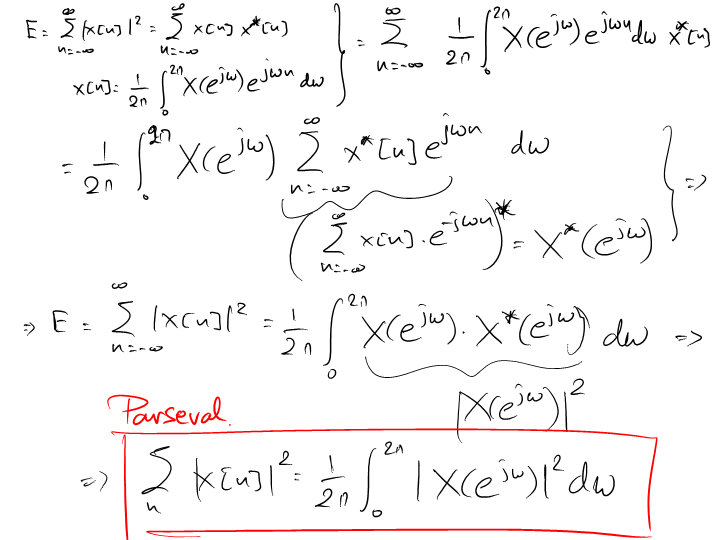 E = ∑_{n=-∞}^{∞} |x[n]|² = ∑_{n=-∞}^{∞} x[n] x*[n] } = ∑_{n=-∞}^{∞} 1/2π ∫_0^{2π} X(e^{jω}) e^{jωn} dω x*[n]
x[n] = 1/2π ∫_0^{2π} X(e^{jω}) e^{jωn} dω
= 1/2π ∫_0^{2π} X(e^{jω}) ∑_{n=-∞}^{∞} x*[n] e^{jωn} dω } ⇒
(∑_{n=-∞}^{∞} x[n] · e^{-jωn})* = X*(e^{jω})
⇒ E = ∑_{n=-∞}^{∞} |x[n]|² = 1/2π ∫_0^{2π} X(e^{jω}) · X*(e^{jω}) dω ⇒
|X(e^{jω})|²
Parseval.
⇒ ∑_n |x[n]|² = 1/2π ∫_0^{2π} |X(e^{jω})|² dω